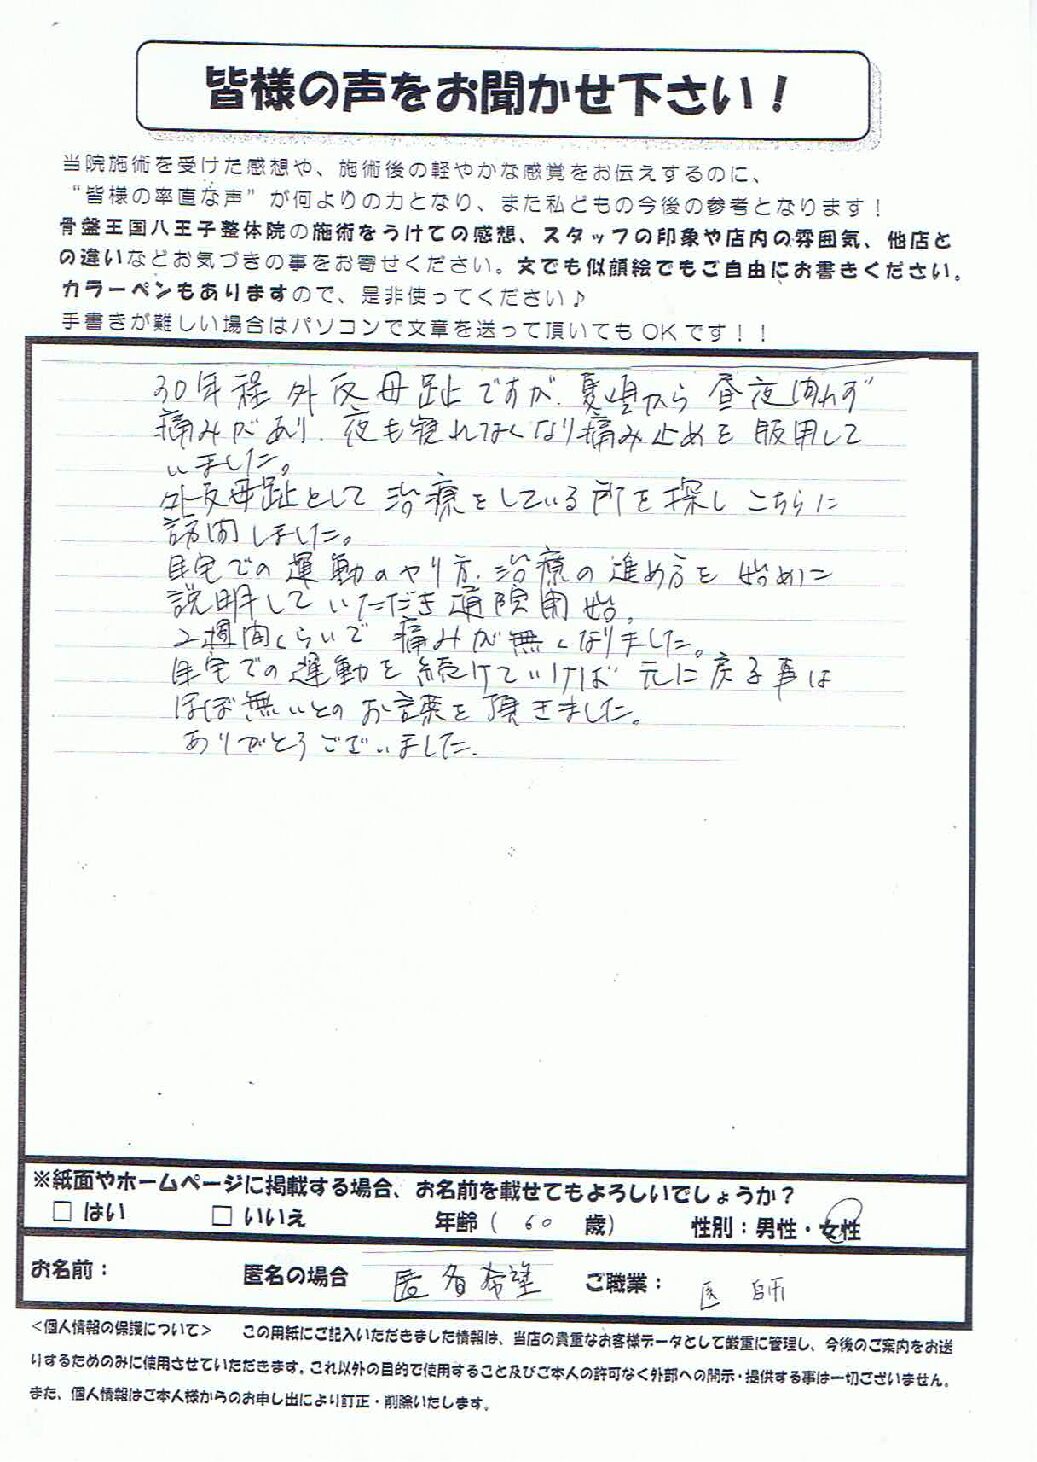 皆様の声をお聞かせ下さい！
当院施術を受けた感想や、施術後の軽やかな感覚をお伝えするのに、
“皆様の率直な声”が何よりの力となり、また私どもの今後の参考となります！
骨盤王国八王子整体院の施術をうけての感想、スタッフの印象や店内の雰囲気、他店と
の違いなどお気づきの事をお寄せください。文でも似顔絵でもご自由にお書きください。
カラーペンもありますので、是非使ってください♪
手書きが難しい場合はパソコンで文章を送って頂いてもOKです！！
30年程外反母趾ですが、夏頃から昼夜問わず
痛みがあり、夜も寝れなくなり痛み止めを服用して
いました。
外反母趾として治療をしている所を探しこちらに
訪問しました。
自宅での運動のやり方、治療の進め方を始めに
説明していただき通院開始。
2週間くらいで痛みが無くなりました。
自宅での運動を続けていけば元に戻る事は
ほぼ無いとのお言葉を頂きました。
ありがとうございました。
※紙面やホームページに掲載する場合、お名前を載せてもよろしいでしょうか？
□ はい □ いいえ 年齢（ 60 歳） 性別：男性・女性
お名前： 匿名の場合 匿名希望 ご職業： 医師
＜個人情報の保護について＞ この用紙にご記入いただきました情報は、当店の貴重なお客様データとして厳重に管理し、今後のご案内をお送
りするためのみに使用させていただきます。これ以外の目的で使用すること及びご本人の許可なく外部への開示・提供する事は一切ございません。
また、個人情報はご本人様からのお申し出により訂正・削除いたします。